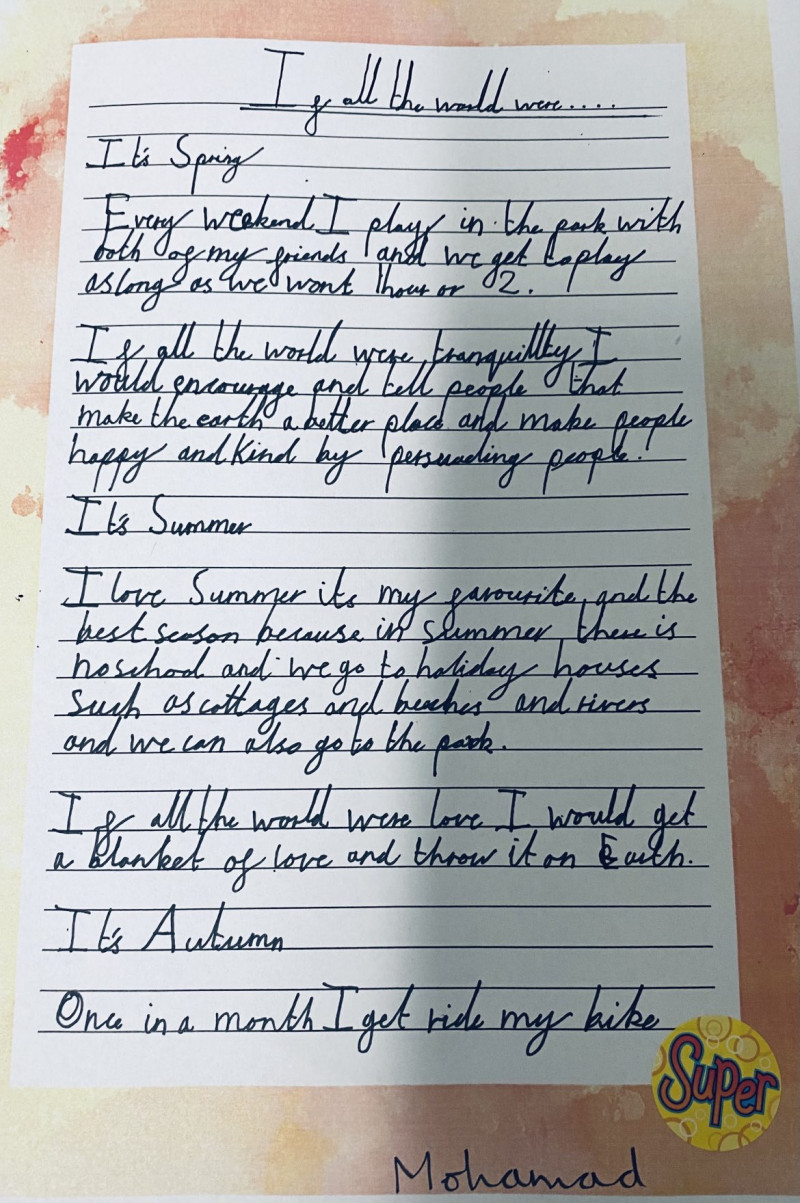 If all the world were.....
It's Spring
Every weekend I play in the park with
both of my friends and we get to play
as long as we want 1 hour or 2.
If all the world were tranquillity I
would encourage and tell people that
make the earth a better place and make people
happy and kind by persuading people.
It's Summer
I love Summer its my favourite and the
best season because in summer there is
no school and we go to holiday houses
such as cottages and beaches and rivers
and we can also go to the park.
If all the world were love I would get
a blanket of love and throw it on Earth.
It's Autumn
Once in a month I get ride my bike
Super
Mohamad